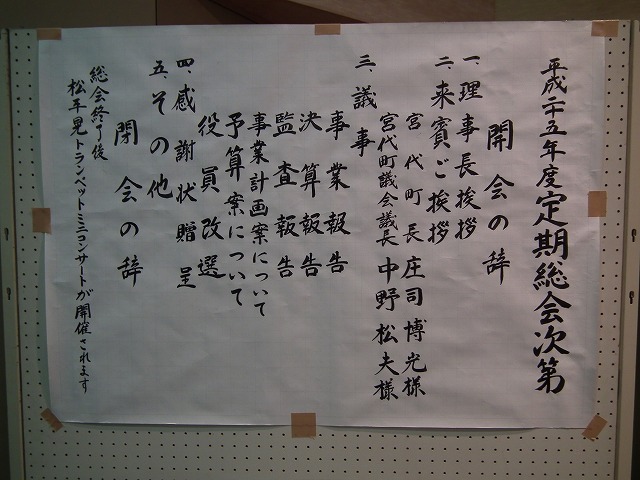 平成二十五年度定期総会次第
開会の辞
一、理事長挨拶
二、来賓ご挨拶
宮代町長 庄司博光様
宮代町議会議長 中野松夫様
三、議事
事業報告
決算報告
監査報告
事業計画案について
予算案について
役員改選
四、感謝状贈呈
五、その他
閉会の辞
総会終了後
松平晃トランペットミニコンサートが開催されます